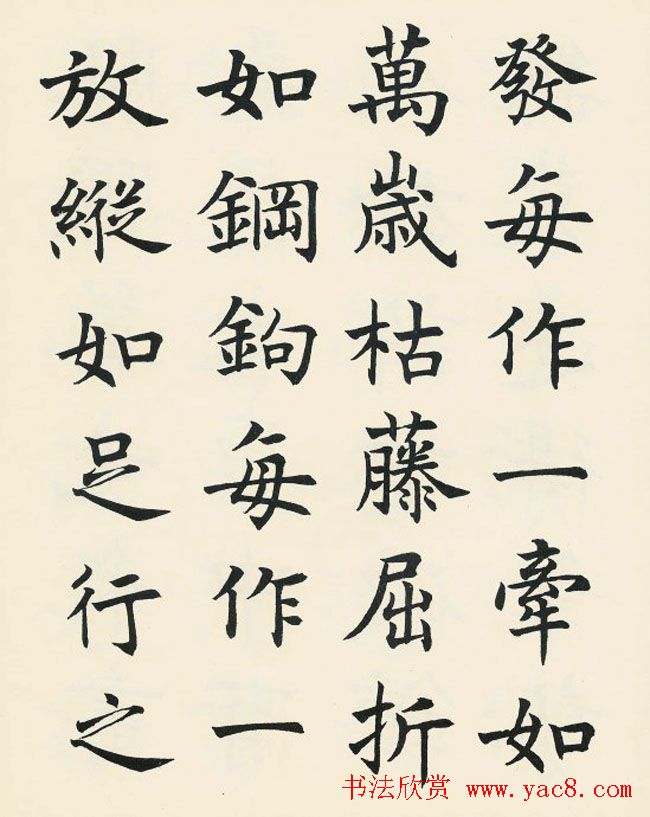 發每作一牽如
萬歲枯藤屈折
如鋼鉤每作一
放縱如足行之
书法欣赏 www.yac8.com